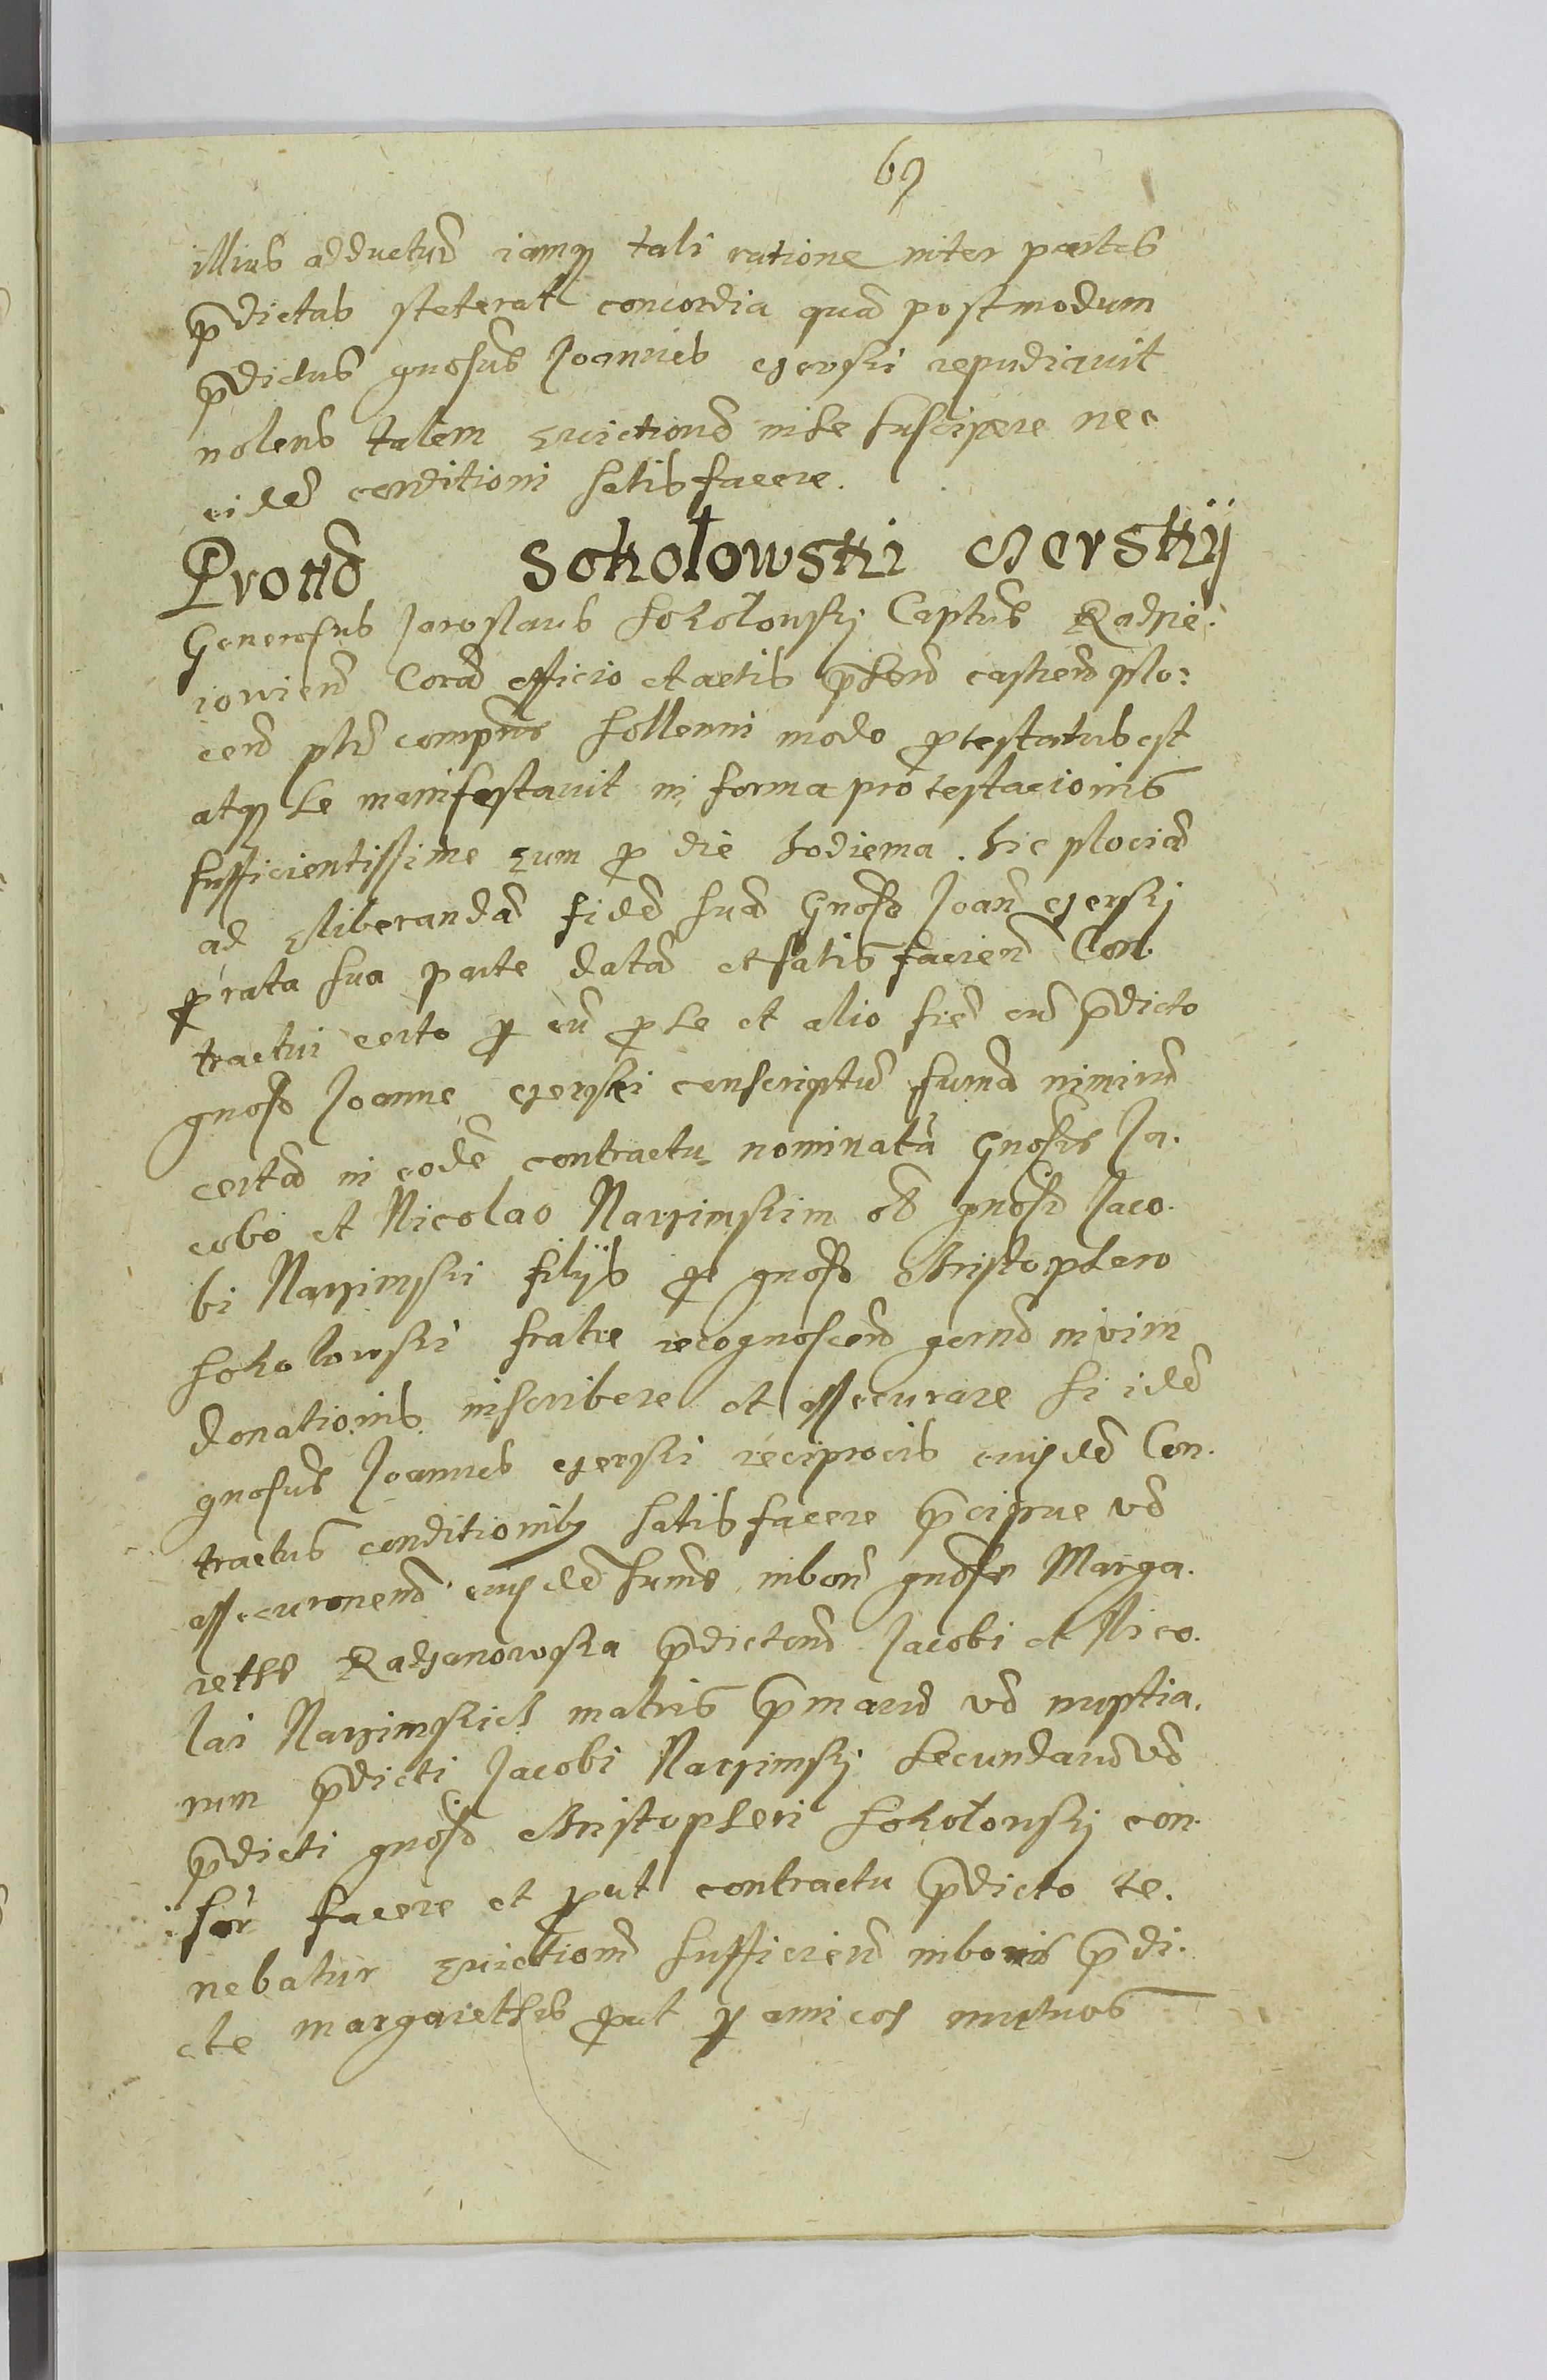 67
illius adductum iamq tali ratione inter partes
p̄dictas steterat concordia quam postmodum
p̄dictus gnosus Joannes Czerski repudiavit
nolens talem Evictionem in se suscipere nec
eidem conditioni satisfacere.
Sokolowski Czerskÿ
Generosus Jaroslaus Sokolowskj Captus Radzie:
ioviens Coram officio et actis p̄sen castren plo:
cen plr compns sollenni modo protestatus est
atq se manifestavit in forma protestacionis
sufficientissime Eum pro die hodierna hic plociam
ad Eliberandam fidem suam Gnoso Joan Czerskj
pro rata sua parte datam et satisfaciend Con.
tractui certo per eum pro se et alio frem cum p̄dicto
gnoso Joanne Czerski conscriptum sumam nimirum
certam in eodem contractu nominatam Gnosis Ja.
cobo et Nicolao Narzimskim olim gnosi Jaco.
bi Narzimski filÿs pro gnoso Christophero
Sokolowski fratre recognoscend germ in vim
donationis inscribere et assecurare si idem
gnosus Joannes Czerski reciprocis eiusdem Con.
tractus conditionibq satisfacere p̄cipue vero
assecuronem eiusdem sume in bonis gnose Marga.
rethe Radzanowska p̄dictorum Jacobi et Nico.
lai Narzimskich matris p̄marum vero nuptia.
rum p̄dicti Jacobi Narzimskj secundarum vero
p̄dicti gnosi Christopheri Sokolowskj con.
sor facere et prout contractu p̄dicto te.
nebatur Evictionem sufficien in bonis p̄di.
cte margarethes prout per amicos mutuos